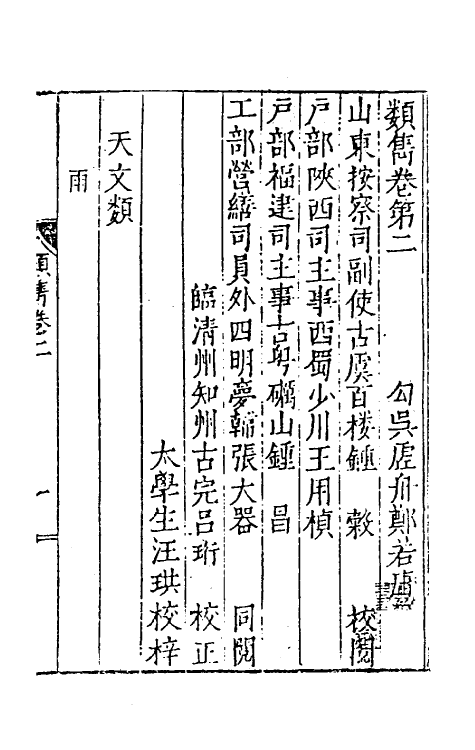 類雋卷第二　勾吳虛舟鄭若庸
山東按察司副使古虞百楼鍾　穀　校閱
戶部陝西司主事西蜀少川王用楨
戶部福建司主事古粤礪山鍾　昌
工部營繕司員外四明夢輔張大器　同閱
臨清州知州古完呂珩　校正
太學生汪珙校梓
天文類
雨
類雋卷二　一